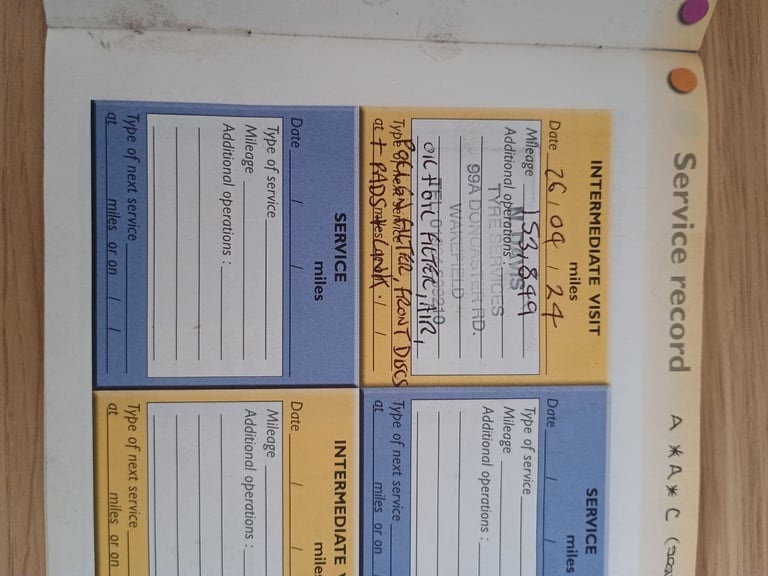 Service record A * A * C
INTERMEDIATE VISIT
miles
Date 26 / 04 / 24
Mileage 153,849
Additional operations :
TYRE SERVICES
99A DONCASTER RD.
WAKEFIELD
OIL + OIL FILTER, AIR,
FILTER, FRONT DISCS
at + PADS miles
SERVICE
miles
Date / /
Type of service
Mileage
Additional operations :
Type of next service
at miles or on / /
SERVICE
miles
Date /
Type of service
Mileage
Additional operations :
Type of next service
at miles or on
INTERMEDIATE
miles
Date / /
Mileage
Additional operations :
Type of next service
at miles or on